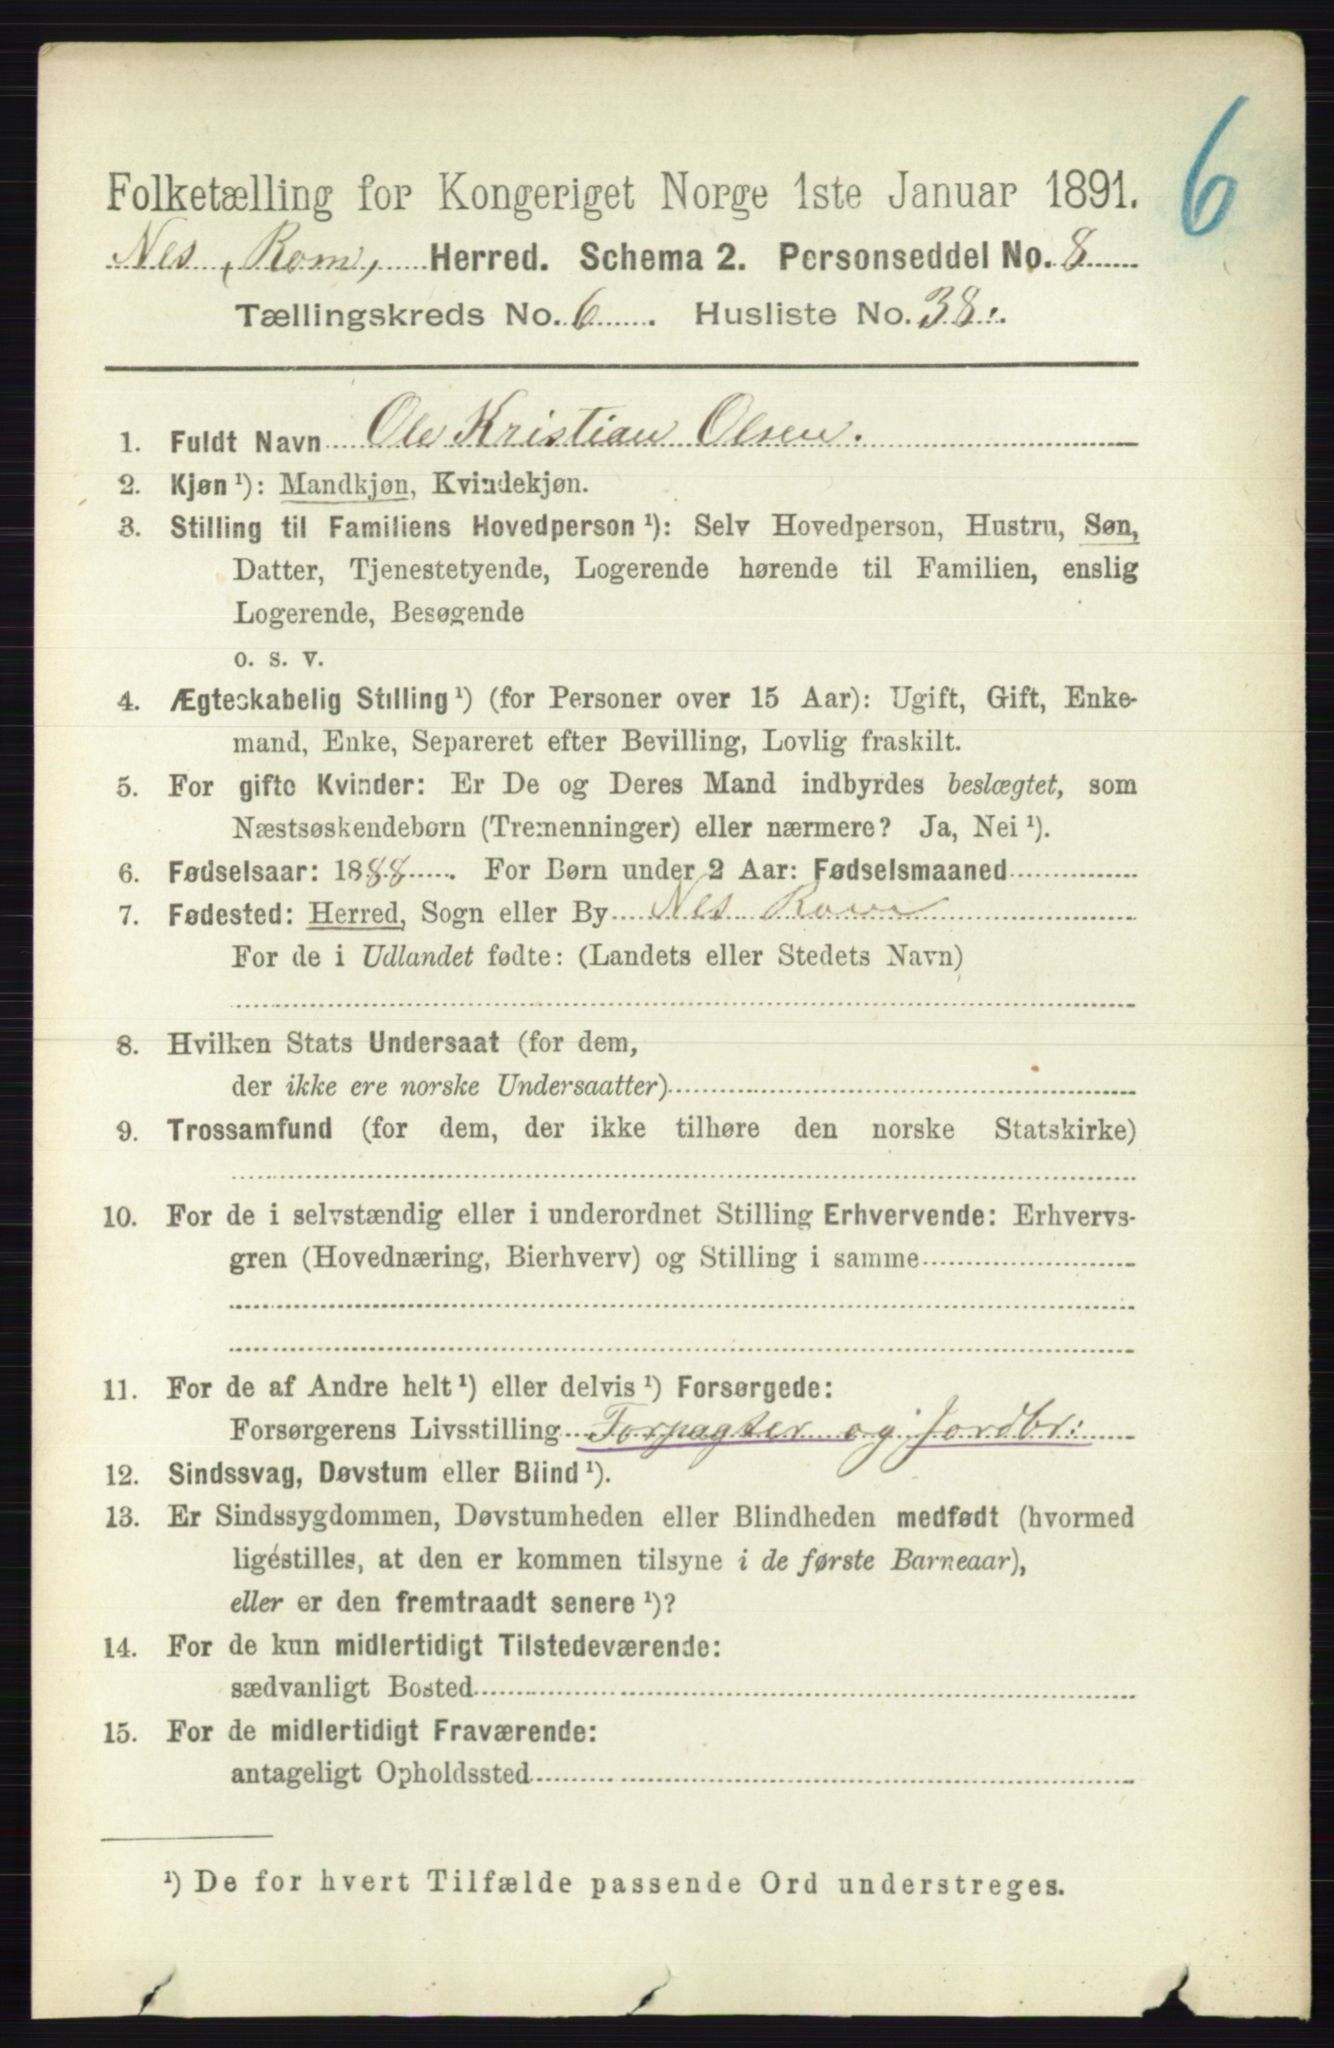 6
Folketælling for Kongeriget Norge 1ste Januar 1891.
Nes, Rom, Herred. Schema 2. Personseddel No. 8
Tællingskreds No. 6. Husliste No. 38.
1. Fuldt Navn Ole Kristian Olsen.
2. Kjøn ¹): Mandkjøn, Kvindekjøn.
3. Stilling til Familiens Hovedperson ¹): Selv Hovedperson, Hustru, Søn,
Datter, Tjenestetyende, Logerende hørende til Familien, enslig
Logerende, Besøgende
o. s. v.
4. Ægteskabelig Stilling ¹) (for Personer over 15 Aar): Ugift, Gift, Enke-
mand, Enke, Separeret efter Bevilling, Lovlig fraskilt.
5. For gifte Kvinder: Er De og Deres Mand indbyrdes beslægtet, som
Næstsøskendebørn (Tremenninger) eller nærmere? Ja, Nei ¹).
6. Fødselsaar: 1888. For Børn under 2 Aar: Fødselsmaaned
7. Fødested: Herred, Sogn eller By Nes Rom
For de i Udlandet fødte: (Landets eller Stedets Navn)
8. Hvilken Stats Undersaat (for dem,
der ikke ere norske Undersaatter)
9. Trossamfund (for dem, der ikke tilhøre den norske Statskirke)
10. For de i selvstændig eller i underordnet Stilling Erhvervende: Erhvervs-
gren (Hovednæring, Bierhverv) og Stilling i samme
11. For de af Andre helt ¹) eller delvis ¹) Forsørgede:
Forsørgerens Livsstilling Forpagter og Jordbr:
12. Sindssvag, Døvstum eller Blind ¹).
13. Er Sindssygdommen, Døvstumheden eller Blindheden medfødt (hvormed
ligestilles, at den er kommen tilsyne i de første Barneaar),
eller er den fremtraadt senere ¹)?
14. For de kun midlertidigt Tilstedeværende:
sædvanligt Bosted
15. For de midlertidigt Fraværende:
antageligt Opholdssted
¹) De for hvert Tilfælde passende Ord understreges.